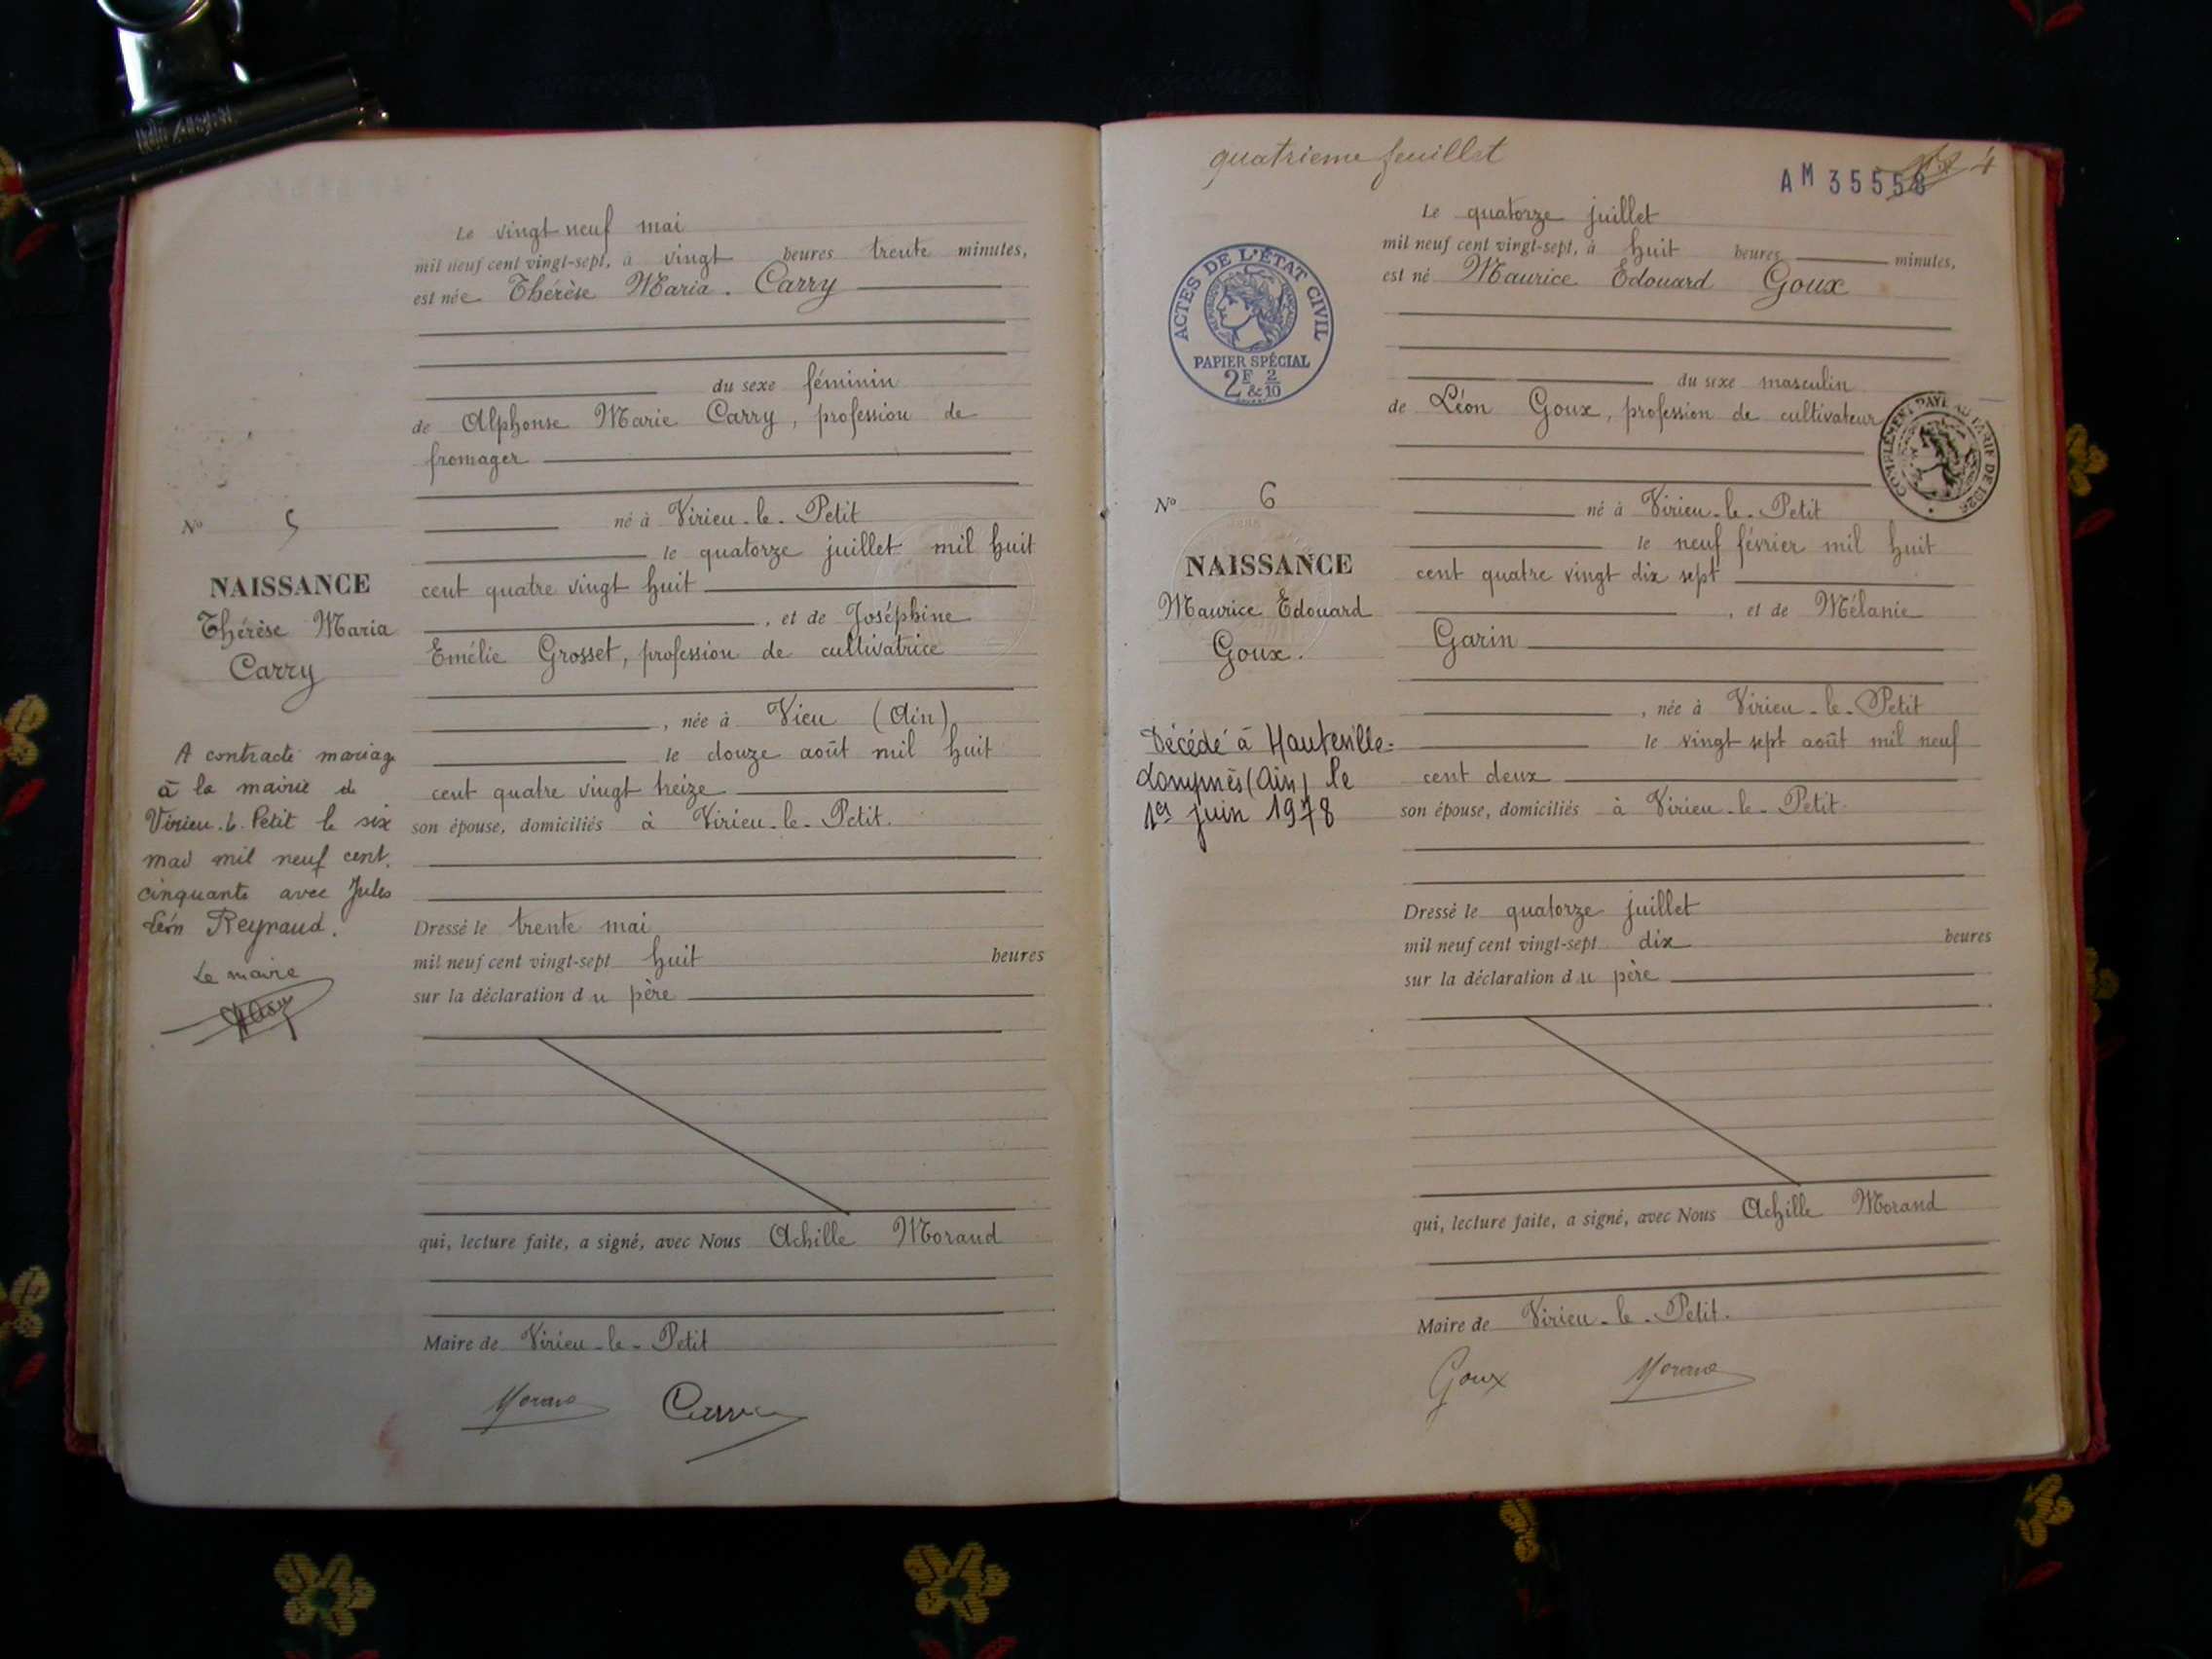 Le vingt neuf mai
mil neuf cent vingt-sept, à vingt heures trente minutes,
est née Thérèse Maria. Carry
du sexe féminin
de Alphonse Marie Carry, profession de
fromager
né à Virieu-le-Petit
le quatorze juillet mil huit
cent quatre vingt huit
, et de Joséphine
Emélie Grosset, profession de cultivatrice
, née à Vieu (Ain)
le douze août mil huit
cent quatre vingt treize
son épouse, domiciliés à Virieu-le-Petit.
Dressé le trente mai
mil neuf cent vingt-sept huit heures
sur la déclaration du père
qui, lecture faite, a signé, avec Nous Achille Morand
Maire de Virieu-le-Petit
Morand
N° 5
NAISSANCE
Thérèse Maria
Carry
A contracté mariage
à la mairie de
Virieu-l-Petit le six
mai mil neuf cent
cinquante avec Jules
Léon Reynaud.
Le maire
quatrieme feuillet
AM 35558
4
Le quatorze juillet
mil neuf cent vingt-sept, à huit heures minutes,
est né Maurice Edouard Goux
du sexe masculin
de Léon Goux, profession de cultivateur
né à Virieu-le-Petit
le neuf février mil huit
cent quatre vingt dix sept
, et de Mélanie
Garin
, née à Virieu-le-Petit
le vingt sept août mil neuf
cent deux
son épouse, domiciliés à Virieu-le-Petit
Dressé le quatorze juillet
mil neuf cent vingt-sept dix heures
sur la déclaration du père
qui, lecture faite, a signé, avec Nous Achille Morand
Maire de Virieu-le-Petit.
Goux Morand
ACTES DE L'ÉTAT CIVIL
RÉPUBLIQUE FRANÇAISE
PAPIER SPÉCIAL
2F & 2/10
COMPLÉMENT PAYÉ AU TARIF DE 1926
N° 6
NAISSANCE
Maurice Edouard
Goux.
Décédé à Hauteville-
Lompnès (Ain) le
1er juin 1978